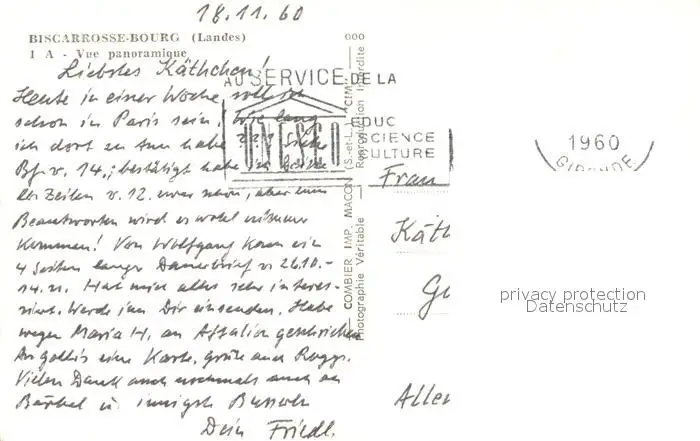 18.11.60
BISCARROSSE-BOURG (Landes)
1 A - Vue panoramique
Liebstes Käthchen!
Heute in einer Woche soll ich
schon in Paris sein! Wie lang
ich dort zu tun habe ???
Bf. v. 14.; bestätigt habe
Zeilen v. 12. schon, aber
Beantworten wird es wohl nimmer
kommen! Von Wolfgang kam ein
4 Seiten langer Dauerbrief v. 26.10.-
14.11. Hat mich alles sehr interes-
siert. Werde ihn Dir einsenden. Habe
wegen Maria H. an geschrieben
An eine Karte, grüße auch
Vielen Dank auch nochmals auch an
Bärbel u. innigste Busserln
Dein Friedl.
AU SERVICE DE LA
UNESCO
EDUC
SCIENCE
CULTURE
COMBIER IMP. MACON (S.-et-L.) "CIM"
Photographie Véritable
Reproduction Interdite
1960
GIRONDE
Frau
Käth
Allen
privacy protection
Datenschutz